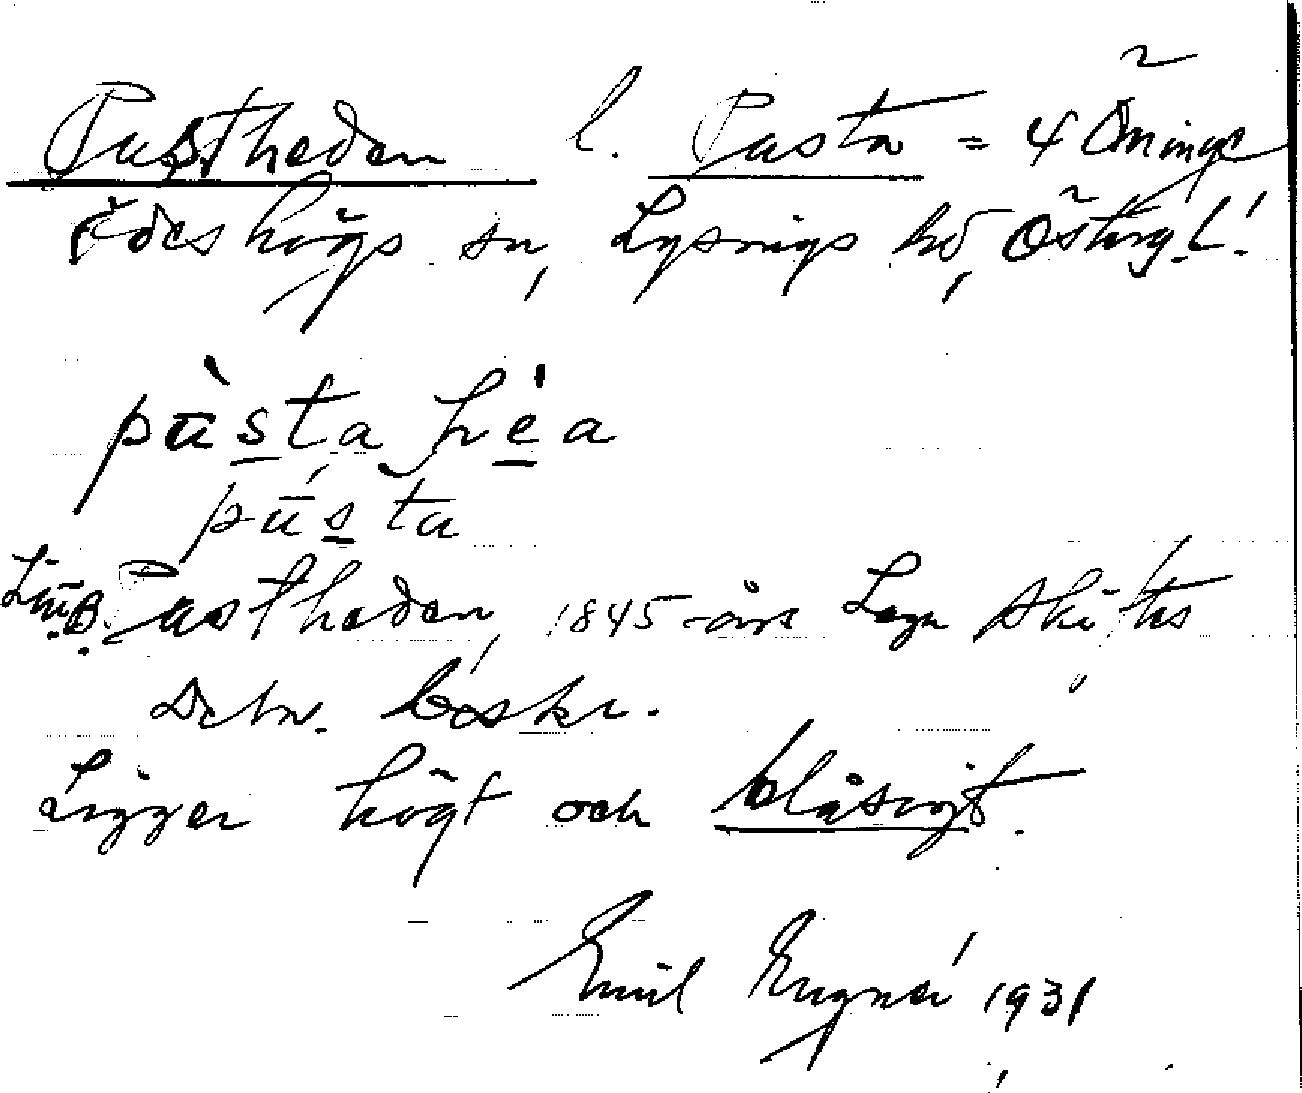 Pustheden l. Pusta = 4 Öninge
Ödeshögs sn, Lysings hd, Östergl.
pūsta hea
pūsta
Pustheden, 1845 -års Laga skiftes
beskr.
Ligger högt och blåsigt.
Emil 1931